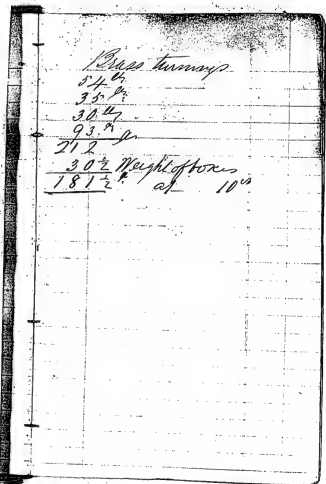 Brass turnings
54 lbs
35 "
30 lbs
93 "
212 "
30½ Weight of boxes
181½ " at 10 cts